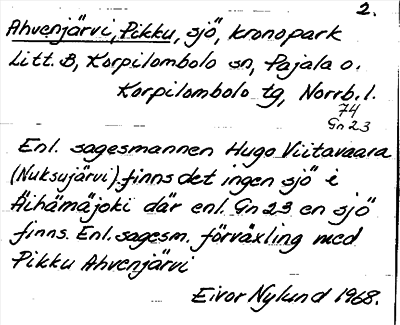 2.
Ahvenjärvi, Pikku, sjö, kronopark
Litt. B, Korpilombolo sn, Pajala o.
Korpilombolo tg, Norrb. l.
74
Gn 23
Enl. sagesmannen Hugo Viitavaara
(Nuksujärvi) finns det ingen sjö i
Äihämäjoki där enl. Gn 23 en sjö
finns. Enl. sagesm. förväxling med
Pikku Ahvenjärvi
Eivor Nylund 1968.